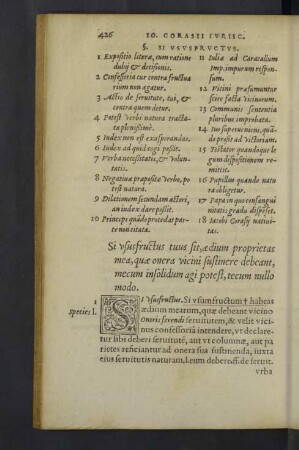 426 IO. CORASII IVRISC.
§. SI VSVSFRVCTVS.
1 Expositio literæ, cum ratione
dubij & decisionis.
2 Confessoria cur contra fructua
rium non agatur.
3 Actio de seruitute, cui, &
contra quem detur.
4 Potest verbi natura tracta-
ta plenissimè.
5 Index non est exasperandus.
6 Index ad quid cogi possit.
7 Verba necessitatis, & volun-
tatis.
8 Negatiua præposita verbo, po
test natura.
9 Dilationem secundam actori,
an iudex dare possit.
10 Princeps quando procedas par-
te non citata.
11 Iuliæ ad Caracallum
Imp. impurum respon-
sum.
12 Vicini præsumuntur
scire facta vicinorum.
13 Communi sententia
pluribus improbata.
14 Ius superueniens, quã-
do prosit ad victoriam.
15 Testator quandoque le
gum dispositionem re-
mittit.
16 Pupillus quando natu
ra obligetur.
17 Papa in quo consangui
nitatis gradu dispẽset.
18 Iacobi Corasij natiui-
tas.
Si vsusfructus tuus sit, ædium proprietas
mea, quæ onera vicini sustinere debeant,
mecum insolidum agi potest, tecum nullo
modo.
1
species l.
SI vsusfructus. Si vsumfructum † habeas
ædium mearum, quæ debeant vicino
oneris ferendi seruitutem, & velit vici-
nus confessoria intendere, vt declare-
tur sibi deberi seruitutẽ, aut vt columnæ, aut pa
rietes reficiantur ad onera sua sustinenda, iuxta
eius seruitutis naturam, l. eum debere. ff. de seruit.
vrba